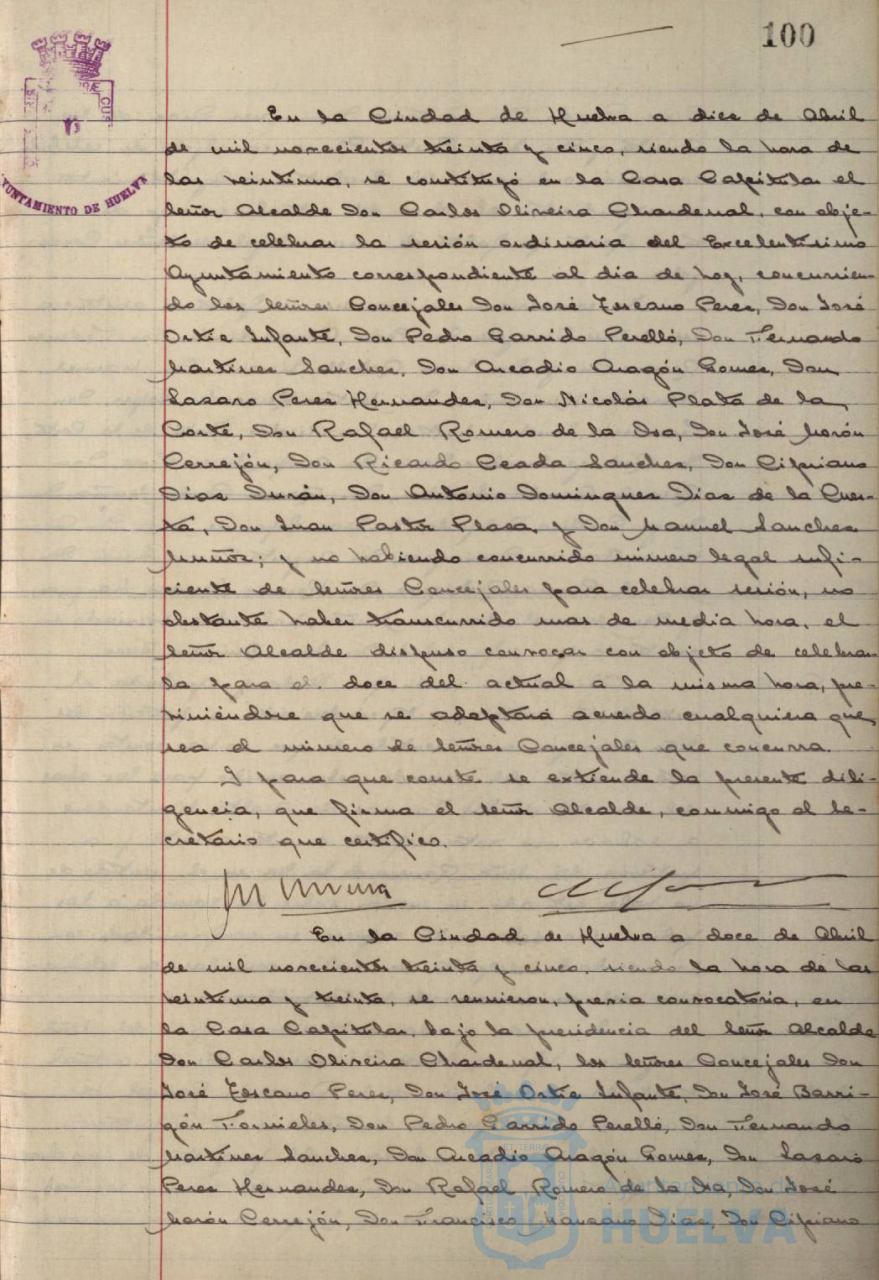 100
AYUNTAMIENTO DE HUELVA
En la Ciudad de Huelva a diez de Abril
de mil novecientos treinta y cinco, siendo la hora de
las veintiuna, se constituyó en la Casa Capitular el
Señor Alcalde Don Carlos Oliveira Chardenal, con obje-
to de celebrar la sesión ordinaria del Excelentísimo
Ayuntamiento correspondiente al dia de hoy, concurrien-
do los Señores Concejales Don José Toscano Perez, Don José
Ortiz Infante, Don Pedro Garrido Perelló, Don Fernando
Martinez Sanchez, Don Arcadio Aragón Gomez, Don
Lazaro Perez Hernandez, Don Nicolás Plata de la
Corte, Don Rafael Romero de la Isa, Don José Morón
Cerrejón, Don Ricardo Ceada Sanchez, Don Cipriano
Dias Durán, Don Antonio Dominguez Dias de la Cues-
ta, Don Juan Pastor Plaza, y Don Manuel Sanchez
Muñoz; y no habiendo concurrido número legal sufi-
ciente de Señores Concejales para celebrar sesión, no
obstante haber transcurrido mas de media hora, el
Señor Alcalde dispuso convocar con objeto de celebrar-
la para el doce del actual a la misma hora, pre-
viniéndose que se adoptará acuerdo cualquiera que
sea el número de Señores Concejales que concurra.
Y para que conste se extiende la presente dili-
gencia, que firma el Señor Alcalde, conmigo el Se-
cretario que certifico.
En la Ciudad de Huelva a doce de Abril
de mil novecientos treinta y cinco, siendo la hora de las
veintiuna y treinta, se reunieron, previa convocatoria, en
la Casa Capitular, bajo la presidencia del Señor Alcalde
Don Carlos Oliveira Chardenal, los Señores Concejales Don
José Toscano Perez, Don José Ortiz Infante, Don José Barri-
gón Fornieles, Don Pedro Garrido Perelló, Don Fernando
Martinez Sanchez, Don Arcadio Aragón Gomez, Don Lazaro
Perez Hernandez, Don Rafael Romero de la Isa, Don José
Morón Cerrejón, Don Francisco Manzano Dias, Don Cipriano
HUELVA